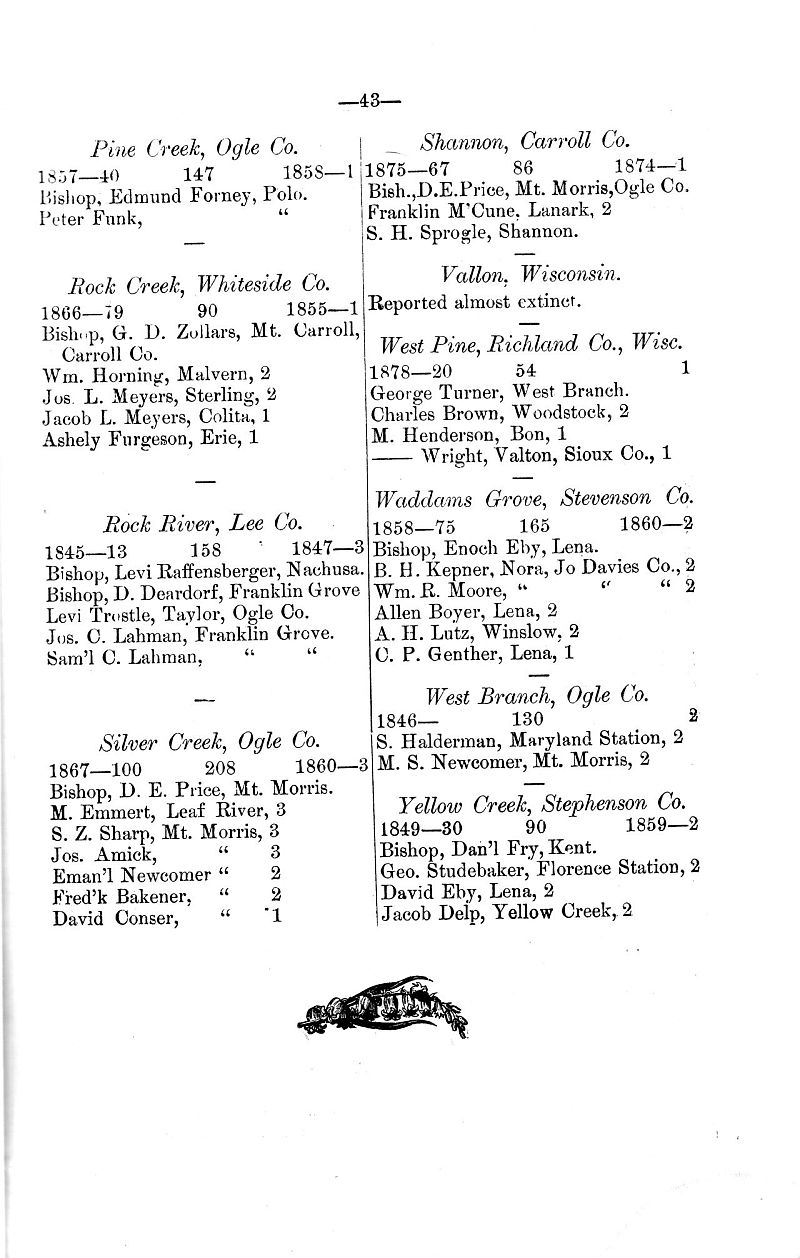 —43—
Pine Creek, Ogle Co.
1857—40 147 1858—1
Bishop, Edmund Forney, Polo.
Peter Funk, “
Rock Creek, Whiteside Co.
1866—79 90 1855—1
Bishop, G. D. Zollars, Mt. Carroll,
Carroll Co.
Wm. Horning, Malvern, 2
Jos. L. Meyers, Sterling, 2
Jacob L. Meyers, Colita, 1
Ashely Furgeson, Erie, 1
Rock River, Lee Co.
1845—13 158 1847—3
Bishop, Levi Raffensberger, Nachusa.
Bishop, D. Deardorf, Franklin Grove
Levi Trostle, Taylor, Ogle Co.
Jos. C. Lahman, Franklin Grove.
Sam'l C. Lahman, “ “
Silver Creek, Ogle Co.
1867—100 208 1860—3
Bishop, D. E. Price, Mt. Morris.
M. Emmert, Leaf River, 3
S. Z. Sharp, Mt. Morris, 3
Jos. Amick, “ 3
Eman'l Newcomer “ 2
Fred'k Bakener, “ 2
David Conser, “ 1
Shannon, Carroll Co.
1875—67 86 1874—1
Bish.,D.E.Price, Mt. Morris,Ogle Co.
Franklin M'Cune, Lanark, 2
S. H. Sprogle, Shannon.
Vallon, Wisconsin.
Reported almost extinct.
West Pine, Richland Co., Wisc.
1878—20 54 1
George Turner, West Branch.
Charles Brown, Woodstock, 2
M. Henderson, Bon, 1
—— Wright, Valton, Sioux Co., 1
Waddams Grove, Stevenson Co.
1858—75 165 1860—2
Bishop, Enoch Eby, Lena.
B. H. Kepner, Nora, Jo Davies Co., 2
Wm. R. Moore, “ “ “ 2
Allen Boyer, Lena, 2
A. H. Lutz, Winslow, 2
C. P. Genther, Lena, 1
West Branch, Ogle Co.
1846— 130 2
S. Halderman, Maryland Station, 2
M. S. Newcomer, Mt. Morris, 2
Yellow Creek, Stephenson Co.
1849—30 90 1859—2
Bishop, Dan'l Fry, Kent.
Geo. Studebaker, Florence Station, 2
David Eby, Lena, 2
Jacob Delp, Yellow Creek, 2